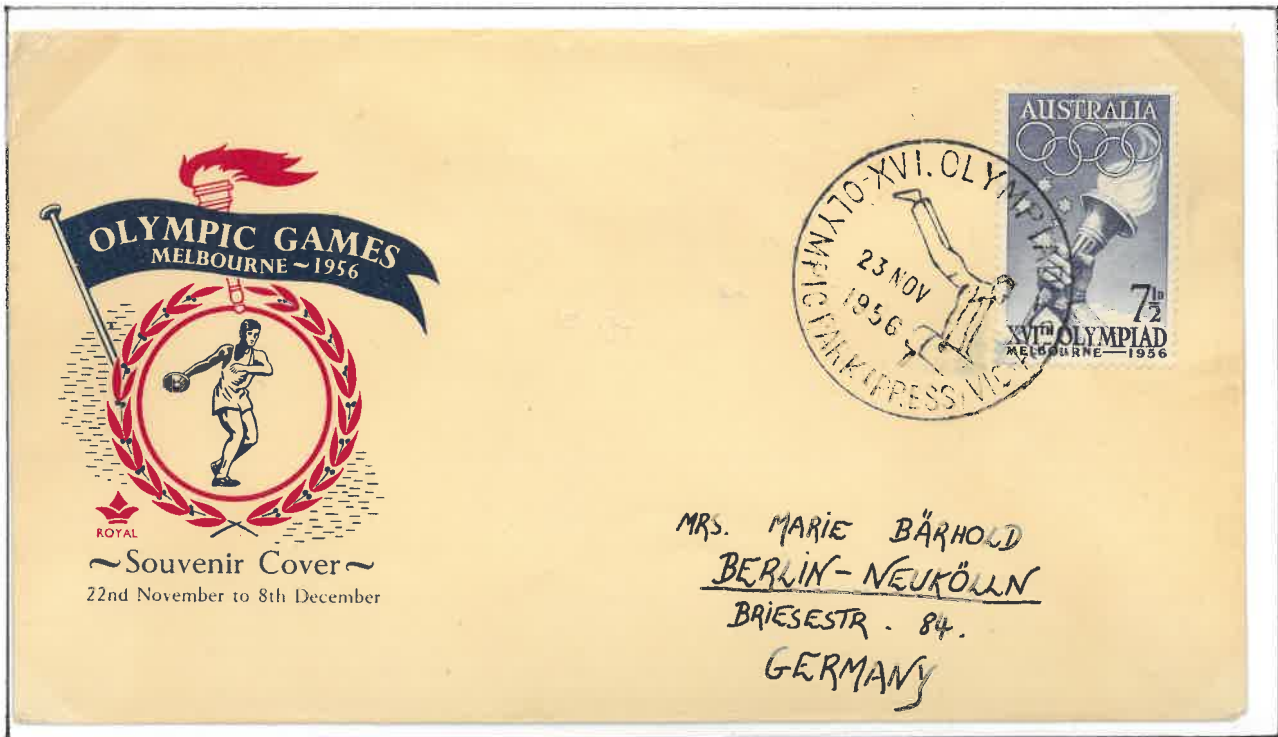 OLYMPIC GAMES
MELBOURNE ~ 1956
ROYAL
~Souvenir Cover~
22nd November to 8th December
XVI. OLYMPIAD
23 NOV
1956
OLYMPIC PARK (PRESS) VIC-AUST
AUSTRALIA
7½D
XVITH OLYMPIAD
MELBOURNE—1956
MRS. MARiE BÄRHOLD
BERLiN-NEUKÖLLN
BRiESESTR. 84.
GERMANY